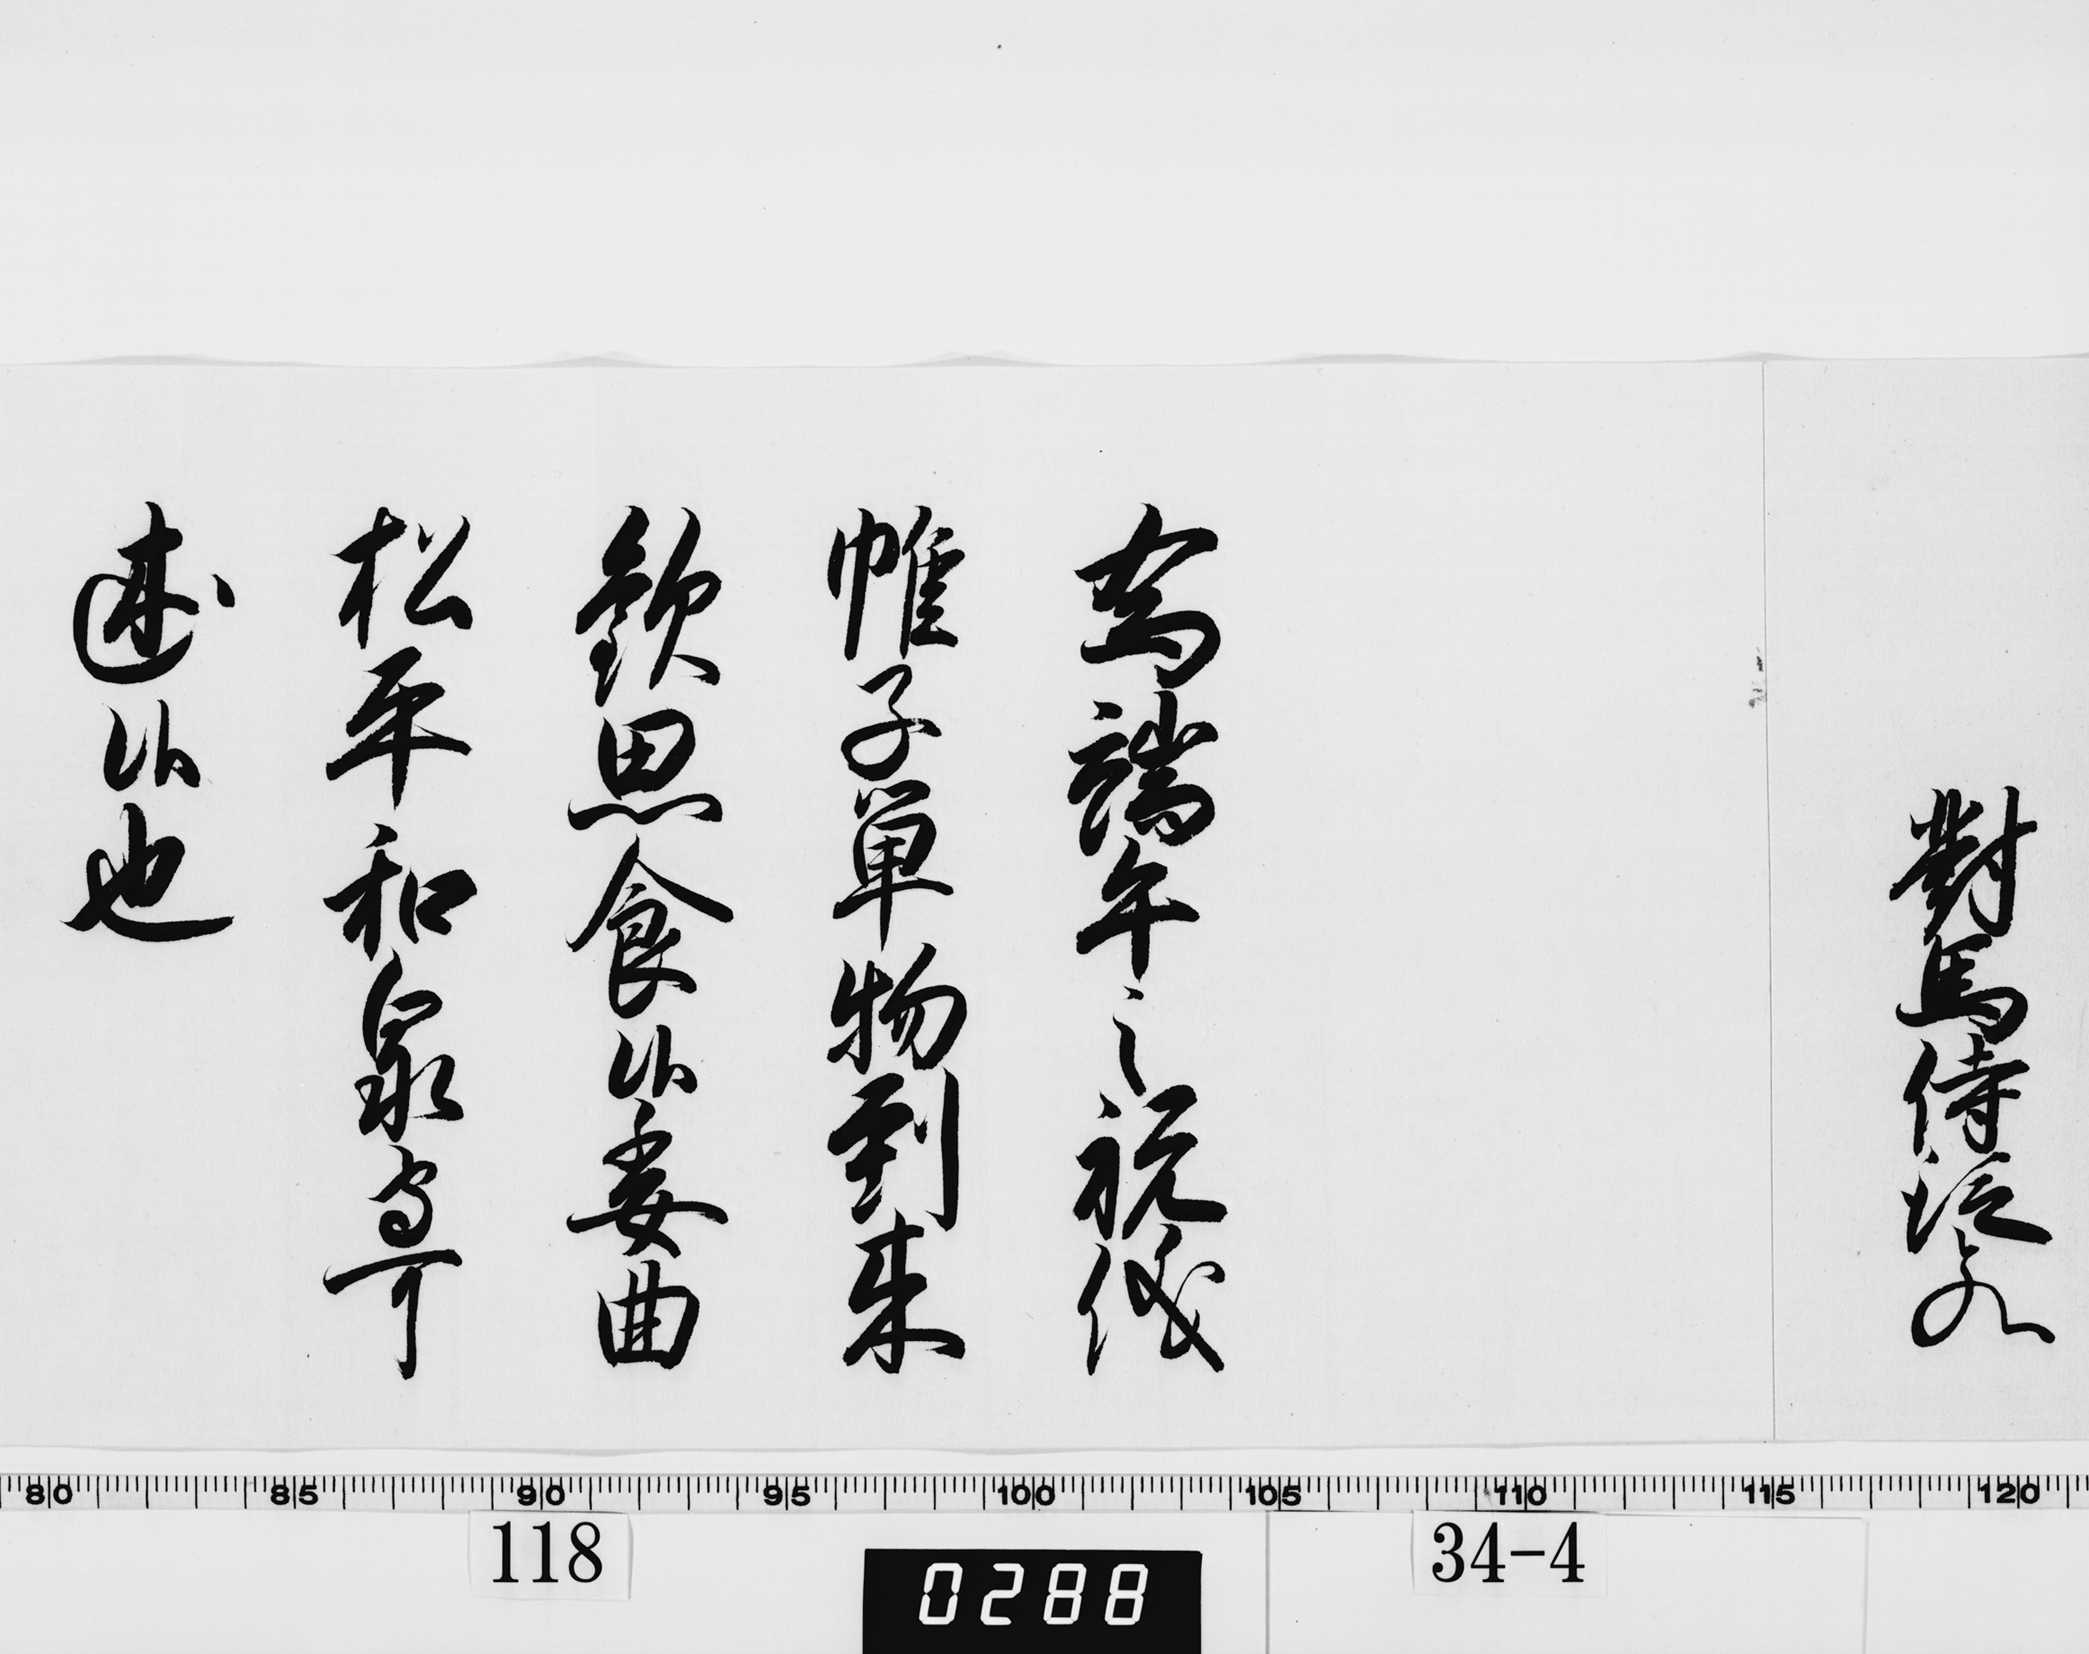 對馬侍従とのへ
為端午之祝儀
帷子単物到来
歓思食候委曲
松平和泉守可
述候也
80 85 90 95 100 105 110 115 120
118
0288
34-4